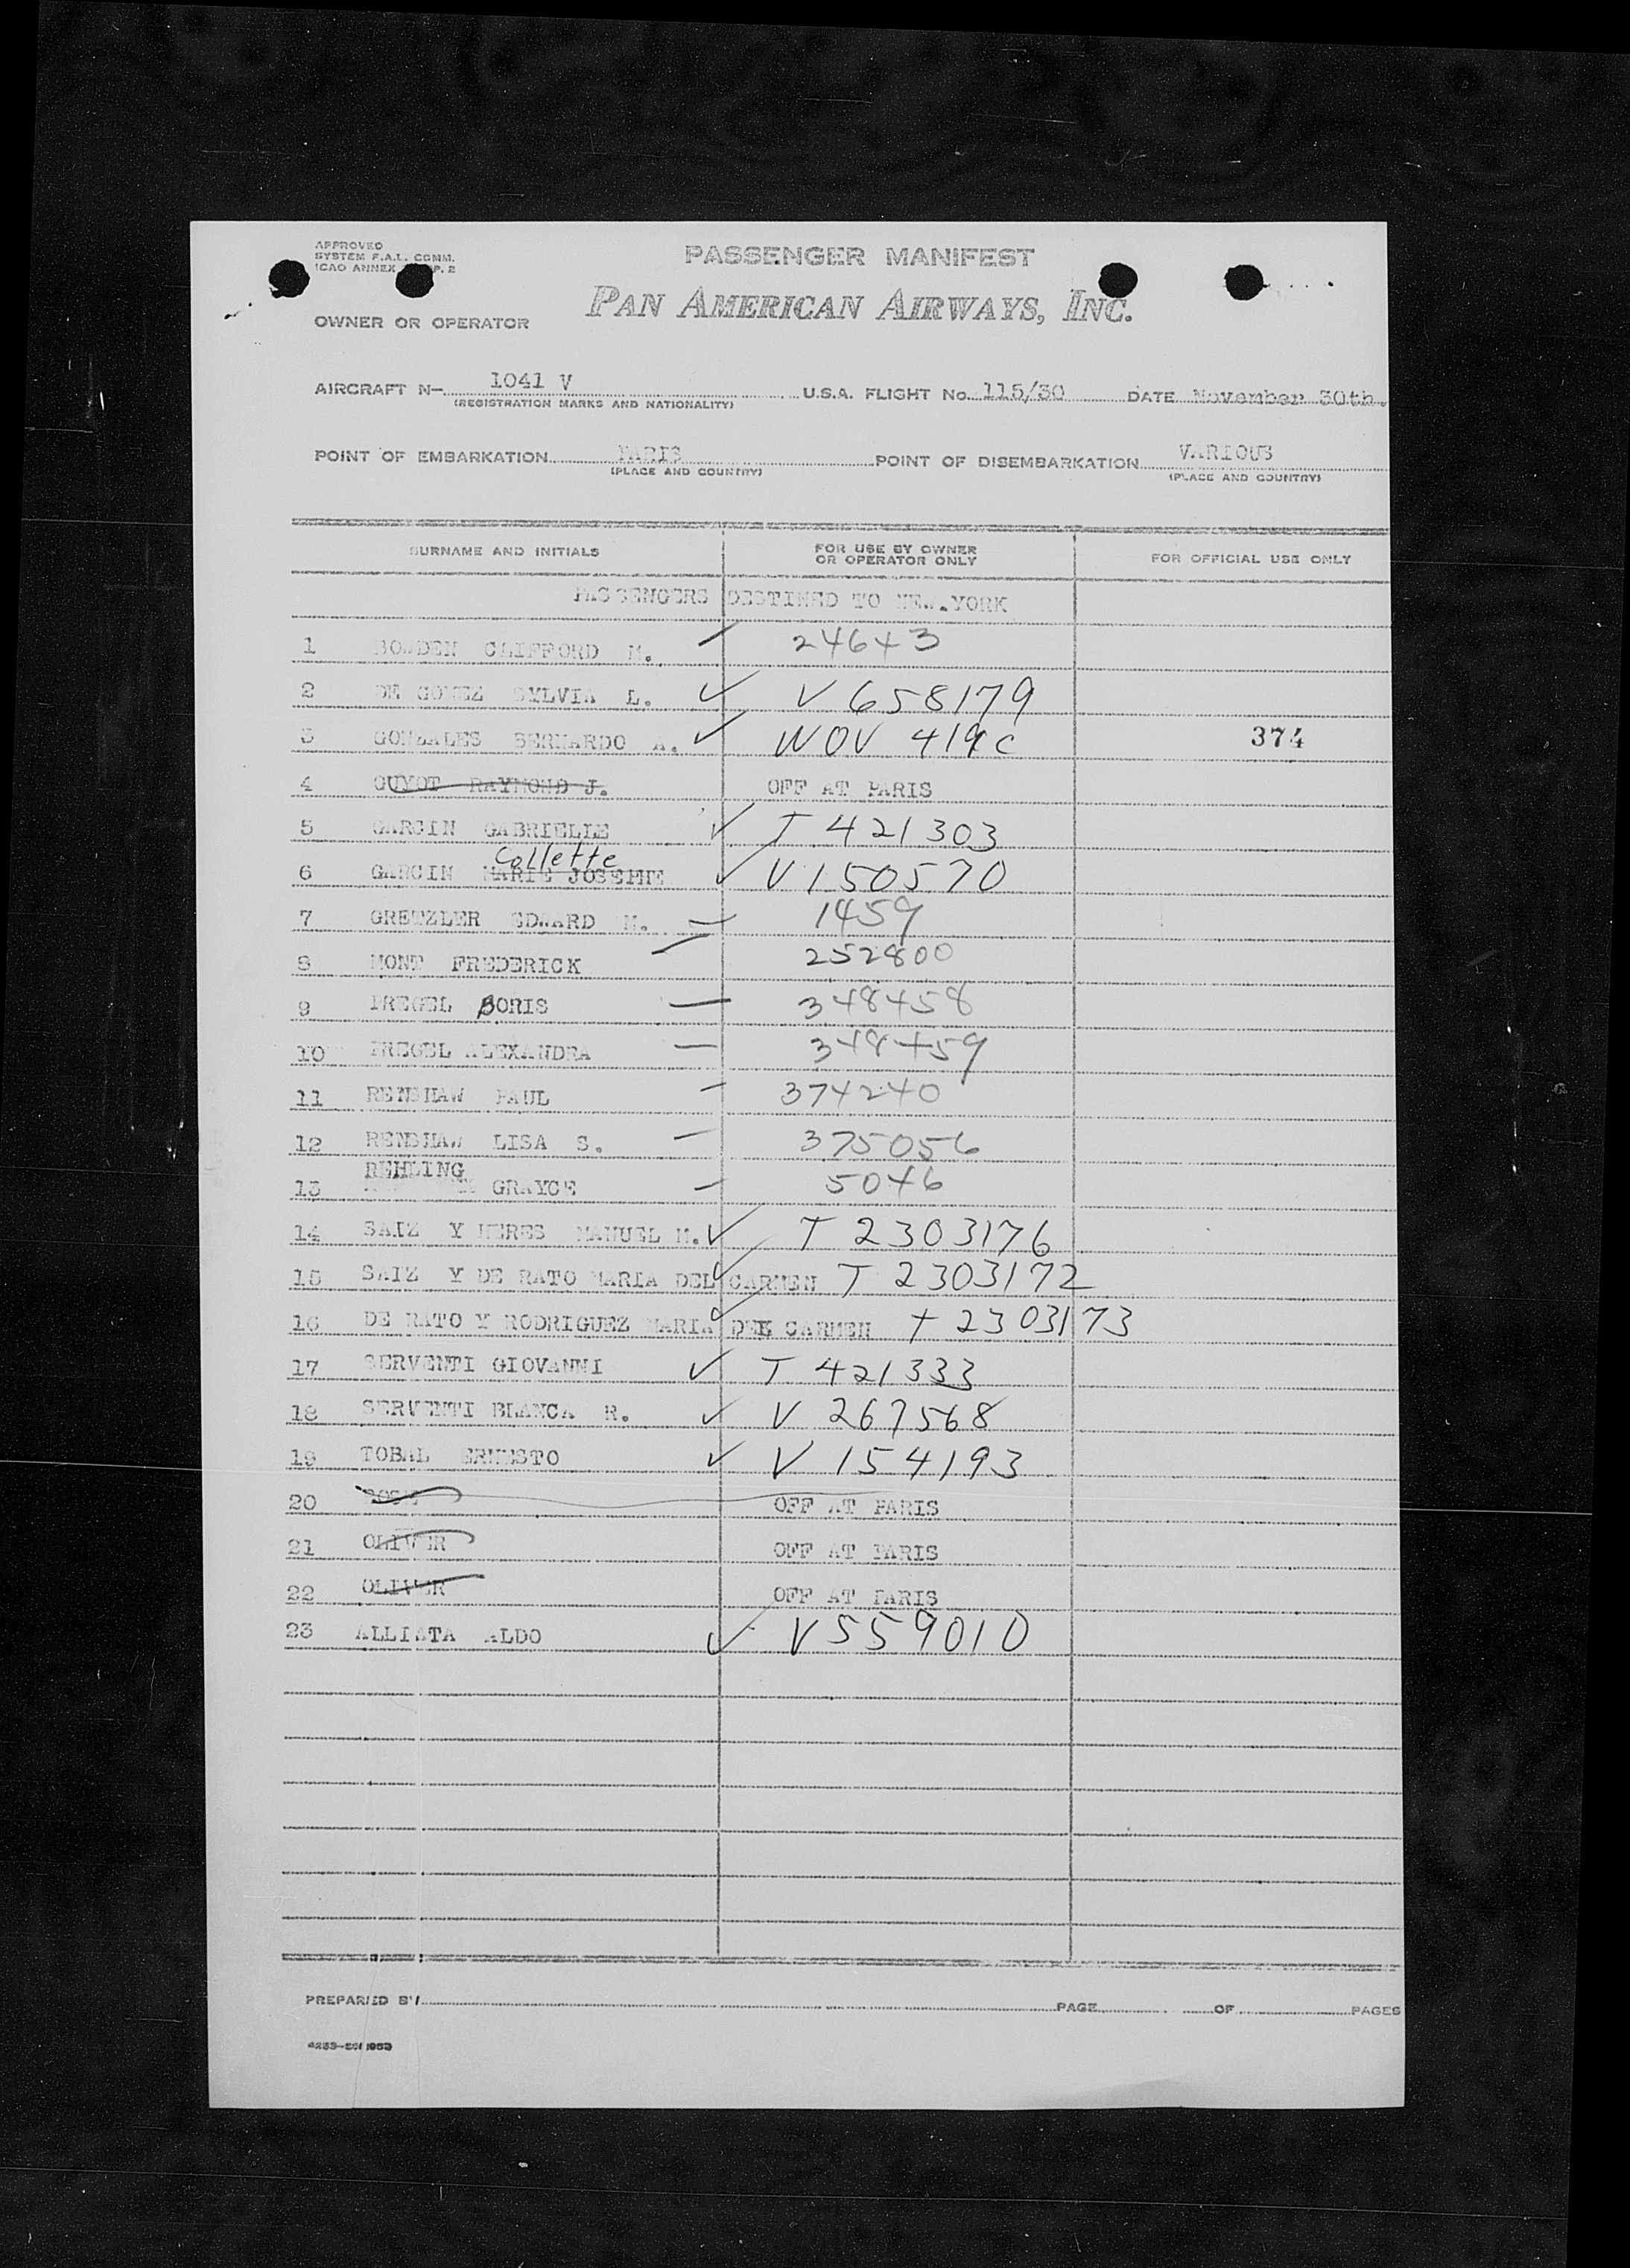 APPROVED
SYSTEM F.A.L. COMM.
ICAO ANNEX P. 2
PASSENGER MANIFEST
PAN AMERICAN AIRWAYS, INC.
OWNER OR OPERATOR
AIRCRAFT N- 1041 V U.S.A. FLIGHT No. 115/30 DATE November 30th.
(REGISTRATION MARKS AND NATIONALITY)
POINT OF EMBARKATION PARIS POINT OF DISEMBARKATION VARIOUS
(PLACE AND COUNTRY) (PLACE AND COUNTRY)
SURNAME AND INITIALS FOR USE BY OWNER OR OPERATOR ONLY FOR OFFICIAL USE ONLY
PASSENGERS DESTINED TO NEW.YORK
1 BOWDEN CLIFFORD M. 24643
2 DE GOMEZ SYLVIA L. V 658179
3 GONZALES BERNARDO A. WOV 419c 374
4 GUYOT RAYMOND J. OFF AT PARIS
5 GARCIN GABRIELLE T 421303
Collette
6 GARCIN MARIE JOSEPHE V 150570
7 GRETZLER EDWARD M. 1459
8 MONT FREDERICK 252800
9 PREGEL BORIS 348458
10 PREGEL ALEXANDRA 348459
11 RENSHAW PAUL 374240
12 RENSHAW LISA S. 375056
REHLING
13 GRAYCE 5046
14 SAIZ Y HERES MANUEL M. T 2303176
15 SAIZ Y DE RATO MARIA DEL CARMEN T 2303172
16 DE RATO Y RODRIGUEZ MARIA DEL CARMEN T 2303173
17 SERVENTI GIOVANNI T 421333
18 SERVENTI BLANCA R. V 267568
19 TOBAL ERNESTO V 154193
20 OFF AT PARIS
21 OLIVER OFF AT PARIS
22 OLIVER OFF AT PARIS
23 ALLIATA ALDO V559010
PREPARED BY PAGE OF PAGES